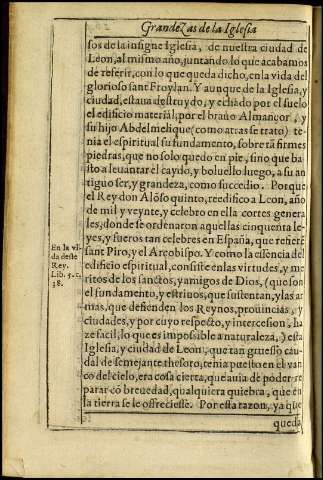 Grandezas de la Iglesia
sos de la insigne Iglesia, de nuestra ciudad de
Leon, al mismo año, juntando lo que acabamos
de referir, con lo que queda dicho, en la vida del
glorioso sant Froylan. Y aunque de la Iglesia, y
ciudad, estaua destruydo, y echado por el suelo
el edificio material, por el brauo Almançor, y
su hijo Abdelmelique (como atras se trato) te-
nia el espiritual su fundamento, sobre tã firmes
piedras, que no solo quedo en pie, sino que ba-
sto a leuantar el caydo, y boluello luego, a su an
tiguo ser, y grandeza, como succedio. Porque
el Rey don Alõso quinto, reedifico a Leon, año
de mil y veynte, y celebro en ella cortes genera
les, donde se ordenaron aquellas cinquenta le-
yes, y fueros tan celebres en España, que refiere
sant Piro, y el Arçobispo. Y como la essencia del
edificio espiritual, consiste en las virtudes, y me
ritos de los sanctos, y amigos de Dios, (que son
el fundamento, y estriuos, que sustentan, y las ar
mas, que defienden los Reynos, prouincias, y
ciudades, y por cuyo respecto, y intercesion, ha
ze facil, lo que es impossible a naturaleza,) esta
Iglesia, y ciudad de Leon, que tan gruesso cau-
dal de semejante thesoro, tenia puesto en el van
co del cielo, era cosa cierta, que auia de poder re
parar cõ breuedad, qualquiera quiebra, que en
la tierra se le offreciesse. Por esta razon, ya que
queda
En la vi
da deste
Rey.
Lib. 5. c.
38.